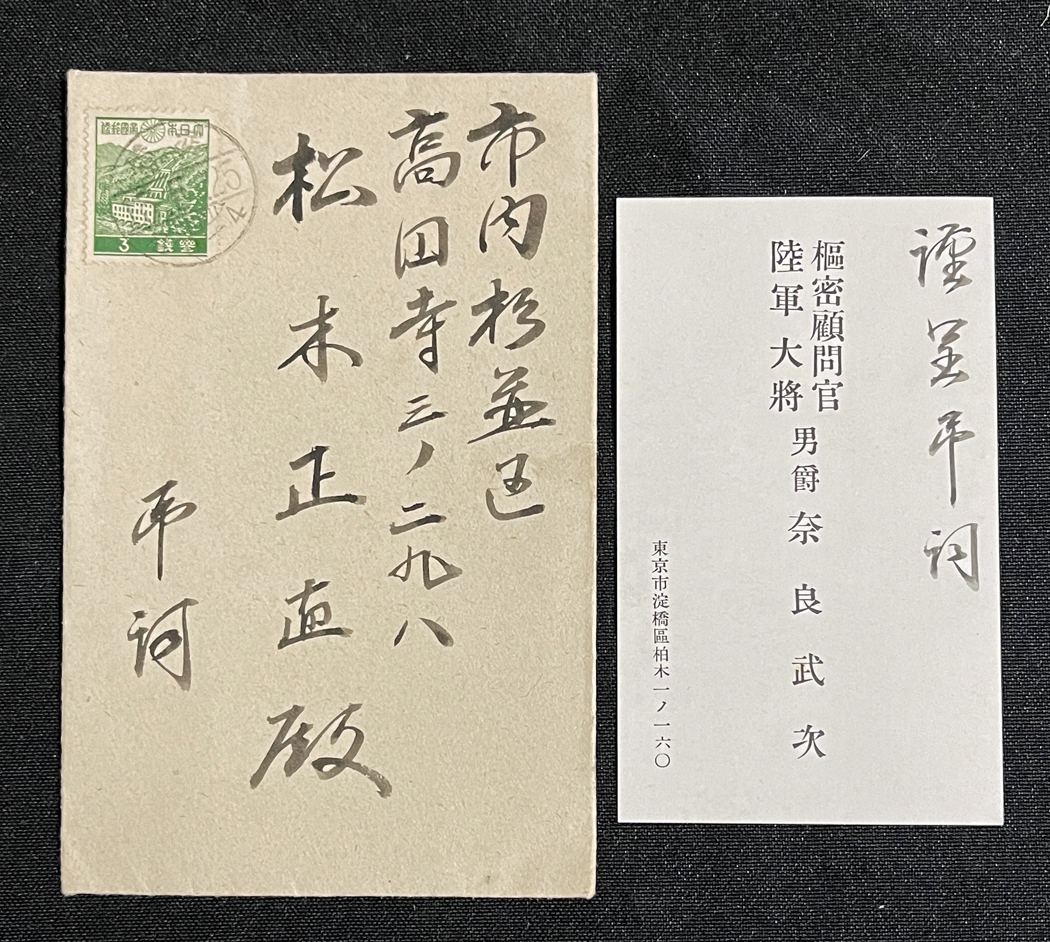 大日本帝國郵便
3 錢 參
市内杉並区
高田寺三ノ二九八
松木正直殿
弔詞
謹呈弔詞
樞密顧問官
陸軍大將
男爵奈良武次
東京市淀橋區柏木一ノ一六〇